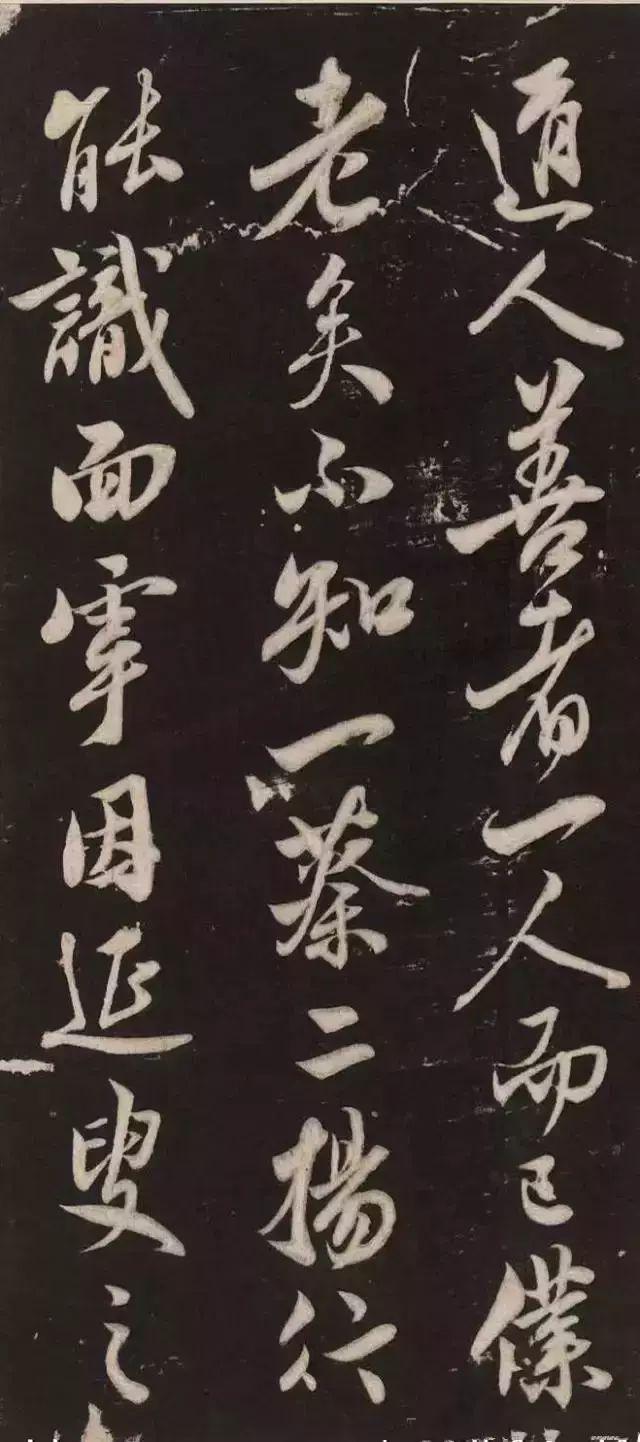 道人善者一人而已僕
老矣不知一蔡二揚行
能識面字因延叟之